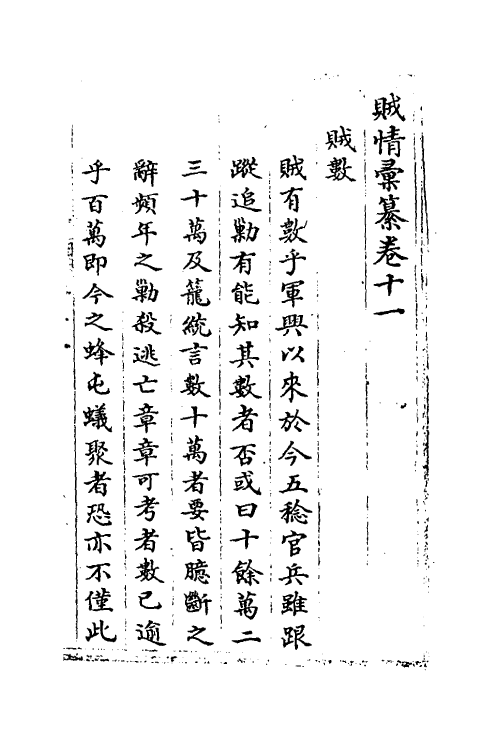 賊情彙纂卷十一
賊數
賊有數乎軍興以來於今五稔官兵雖跟
蹤追勦有能知其數者否或曰十餘萬二
三十萬及籠統言數十萬者要皆臆斷之
辭頻年之勦殺逃亡章章可考者數已逾
乎百萬即今之蜂屯蟻聚者恐亦不僅此